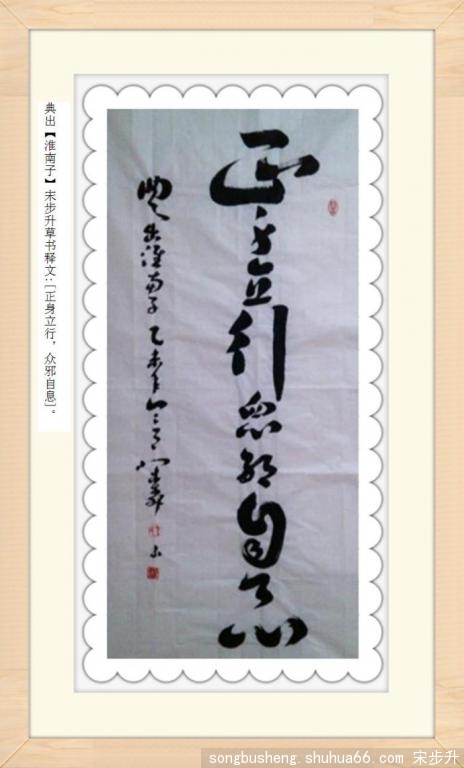 正身立行众邪自息
典出淮南子乙未年
典出【淮南子】宋步升草书释文：［正身立行，众邪自息］。
songbusheng.shuhua66.com 宋步升